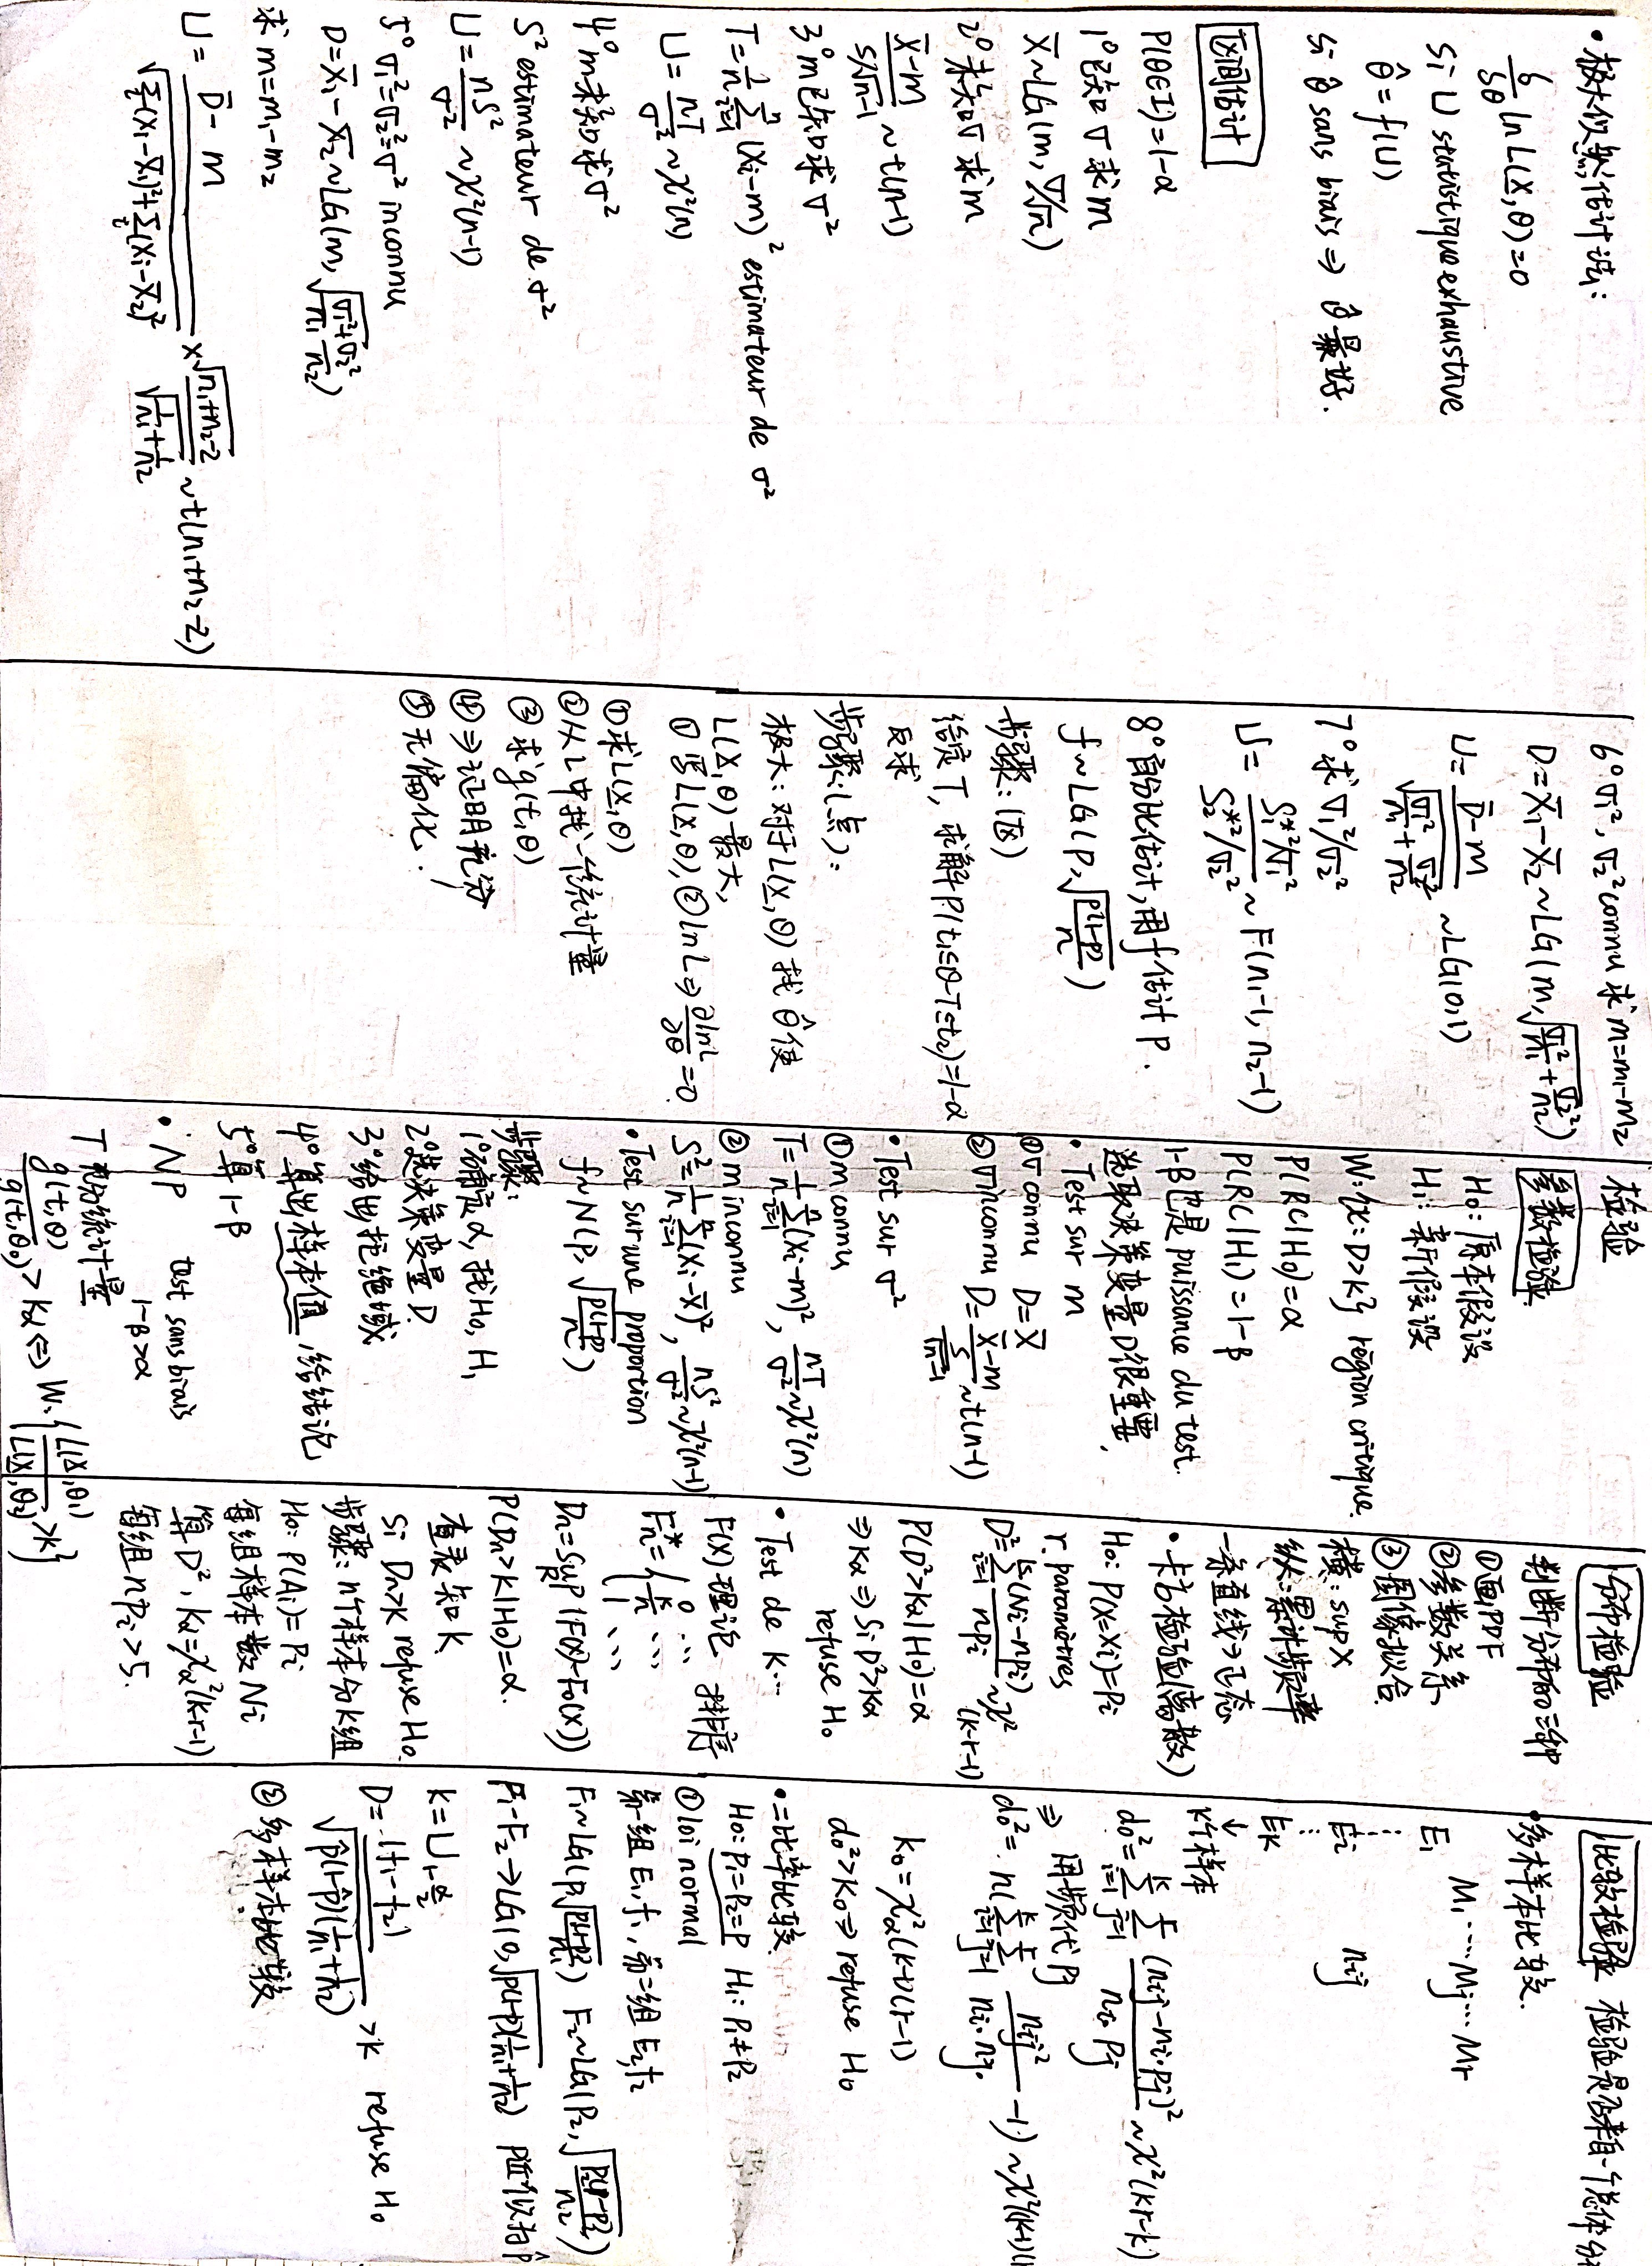 • 极大似然估计法:
δ/δθ ln L(x,θ)=0
Si U statistique exhaustive
θ̂ = f(U)
Si θ̂ sans biais ⇒ θ̂ 最好.
区间估计
P(θ∈I)=1-α
1° 已知σ 求m
X̄~LG(m, σ/√n)
2° 未知σ 求m
(X̄-m)/(S/√n-1) ~ t(n-1)
3° m已知求σ²
T=1/n Σⁿᵢ₌₁ (Xi-m)² estimateur de σ²
U= nT/σ² ~χ²(n)
4° m未知求σ²
S² estimateur de σ²
U= nS²/σ² ~χ²(n-1)
5° σ₁²=σ₂²=σ² inconnu
D=X̄₁-X̄₂~LG(m, √(σ₁²/n₁+σ₂²/n₂))
求 m=m₁-m₂
U= (D̄-m)/√(Σ(Xi-X̄₁)²+Σ(Xi-X̄₂)²) × √(n₁+n₂-2)/√(1/n₁+1/n₂) ~t(n₁+n₂-2)
6° σ₁², σ₂² connu 求 m=m₁-m₂
D=X̄₁-X̄₂~LG(m, √(σ₁²/n₁+σ₂²/n₂))
U= (D̄-m)/√(σ₁²/n₁+σ₂²/n₂) ~LG(0,1)
7° 求 σ₁²/σ₂²
U= (S₁*²/σ₁²)/(S₂*²/σ₂²) ~ F(n₁-1, n₂-1)
8° 百分比估计,用f估计 P.
f~LG(P, √(p(1-p)/n))
步骤: (区)
给定T, 求解P(t₁≤θ-T≤t₂)=1-α
反求
步骤:(点):
极大: 对于L(x,θ) 找 θ̂ 使
L(x,θ) 最大,
① 写L(x,θ), ② ln L ⇒ ∂lnL/∂θ =0
① 求L(x,θ)
② 从L中找一个统计量
③ 求g(t,θ)
④ ⇒ 证明充分
⑤ 无偏化!
检验
参数检验
H₀: 原本假设
H₁: 新假设
W: {x: D>K} région critique.
P(RC|H₀)=α
P(RC|H₁)=1-β
1-β也是 puissance du test.
选取决策变量D很重要.
• Test sur m
① σ connu D=X̄
② σ inconnu D= (X̄-m)/(S/√n-1) ~t(n-1)
• Test sur σ²
① m connu
T=1/n Σⁿᵢ₌₁(Xi-m)², nT/σ² ~χ²(n)
② m inconnu
S²=1/n Σⁿᵢ₌₁(Xi-X̄)², nS²/σ² ~χ²(n-1)
• Test sur une proportion
f~N(P, √(p(1-p)/n))
步骤:
1° 确定α, 找H₀, H₁
2° 选决策变量D.
3° 给出拒绝域
4° 算出样本值,给结论
5° 算 1-β
• NP test sans biais
1-β>α
T 充分统计量
g(t,θ)/g(t,θ₀) > Kα ⇔ W: {L(x,θ₁)/L(x,θ₂) >K}
分布检验
判断分布的三种
① 画PDF
② 参数关系
③ 图像拟合.
横: sup X
纵: 累计频率
一条直线→正态
• 卡方检验(离散)
H₀: P(X=Xi)=Pi
r. paramètres
D²=Σᵏᵢ₌₁ (Ni-npi)/npi ~χ²(K-r-1)
P(D²>Kα|H₀)=α
⇒Kα ⇒ Si D²>Kα
refuse H₀
• Test de K…
F(X) 理论 排序
Fn*= { 0 …
k/n …
1 …
Dn=sup R (F(x)-F₀(x))
P(Dn>K|H₀)=α.
查表知K
Si Dn>K refuse H₀.
步骤: n个样本分K组
H₀: P(Ai)=Pi
每组样本数 Ni
算D², Kα=χα²(K-r-1)
每组 npi>5.
比较检验 检验是否来自一个总体分布
• 多样本比较.
M₁ … Mj … Mr
E₁
⋮
Ei nij
⋮
EK
↓
K个样本
d₀²= Σᵏᵢ₌₁ Σʳⱼ₌₁ (nij-ni·pj)²/ni·pj ~χ²(kr-k)
⇒ 用频代Pj
d₀²= n(Σᵏᵢ₌₁ Σʳⱼ₌₁ nij²/ni·nj· -1) ~χ²((K-1)(r
k₀=χ²α(k-1)(r-1)
d₀²>K₀⇒ refuse H₀
• 二比率比较
H₀: P₁=P₂=P H₁: P₁≠P₂
① loi normal
第一组 E₁,f₁, 第二组 E₂,f₂
F₁~LG(P₁√(p(1-p)/n₁)) F₂~LG(P₂, √(P₂(1-P₂)/n₂))
F₁-F₂→LG(0,√(p(1-p)(1/n₁+1/n₂)) P近似为p̂
K=U₁₋α/₂
D= |f₁-f₂|/√(p̂(1-p̂)(1/n₁+1/n₂)) >K refuse H₀
② 多样本比较